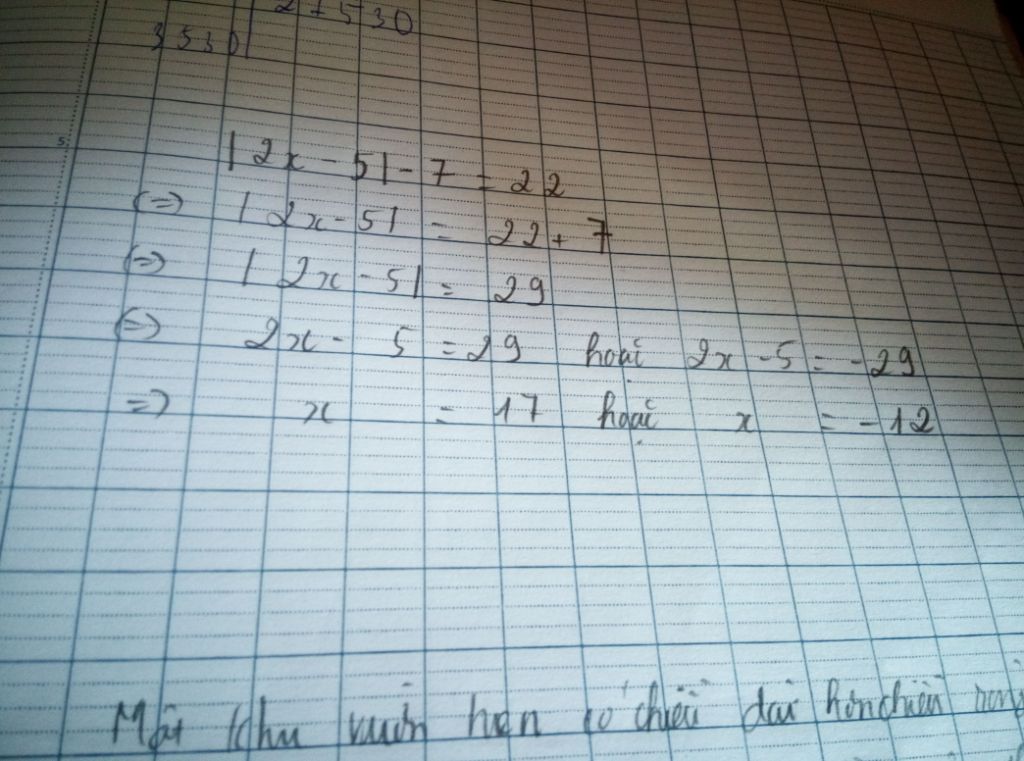 2 + 530
3530
|2x - 5| - 7 = 22
(=) |2x - 5| = 22 + 7
(=) |2x - 5| = 29
(=) 2x - 5 = 29 hoại 2x - 5 = -29
=) x = 17 hoại x = -12
Một khu vườn hơn có chiều dài hơn chiều